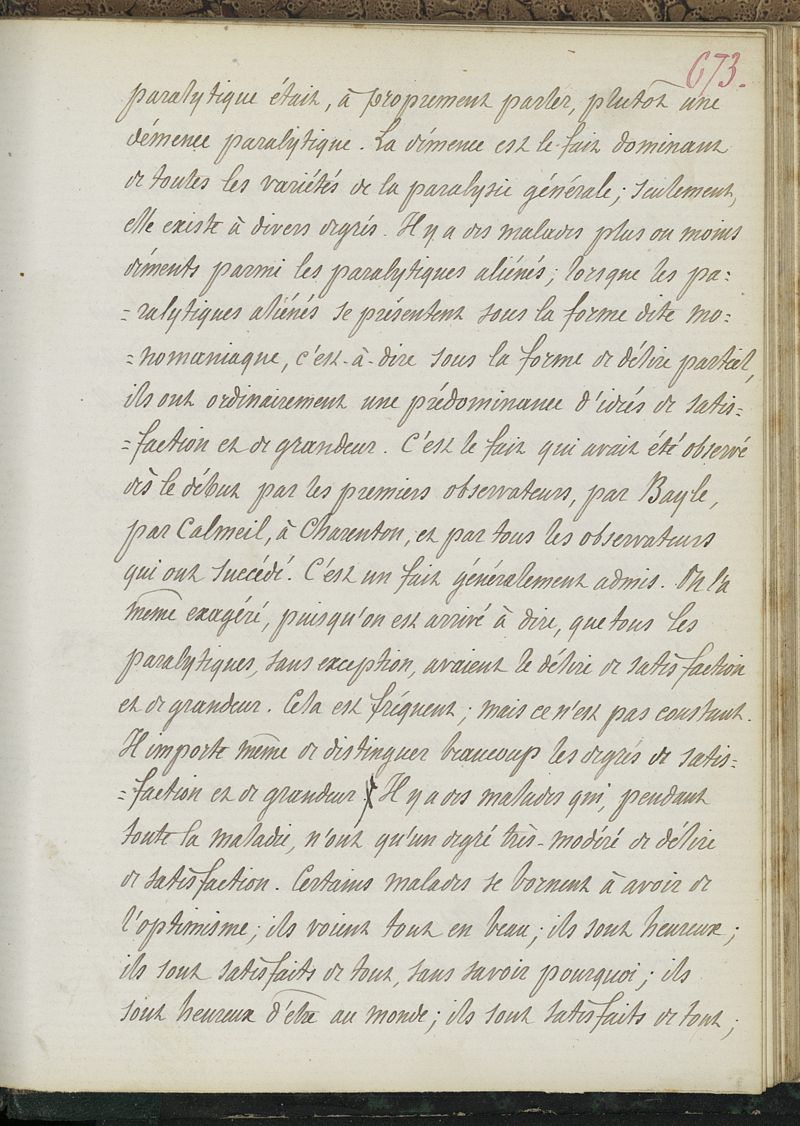 673.
paralytique était, à proprement parler, plutôt une
démence paralytique. La démence est le fait dominant
de toutes les variétés de la paralysie générale; seulement,
elle existe à divers degrés. Il y a des malades plus ou moins
déments parmi les paralytiques aliénés; lorsque les pa=
=ralytiques aliénés se présentent sous la forme dite mo=
=nomaniaque, c'est-à-dire sous la forme de délire partiel,
ils ont ordinairement une prédominance d'idées de satis=
=faction et de grandeur. C'est le fait qui avait été observé
dès le début par les premiers observateurs, par Bayle,
par Calmeil, à Charenton, et par tous les observateurs
qui ont succédé. C'est un fait généralement admis. On l'a
même exagéré, puisqu'on est arrivé à dire, que tous les
paralytiques, sans exception, avaient le délire de satisfaction
et de grandeur. Cela est fréquent; mais ce n'est pas constant.
Il importe même de distinguer beaucoup les degrés de satis=
=faction et de grandeur. Il y a des malades qui, pendant
toute la maladie, n'ont qu'un degré très-modéré de délire
de satisfaction. Certains malades se bornent à avoir de
l'optimisme; ils voient tout en beau; ils sont heureux;
ils sont satisfaits de tout, sans savoir pourquoi; ils
sont heureux d'être au monde; ils sont satisfaits de tout;